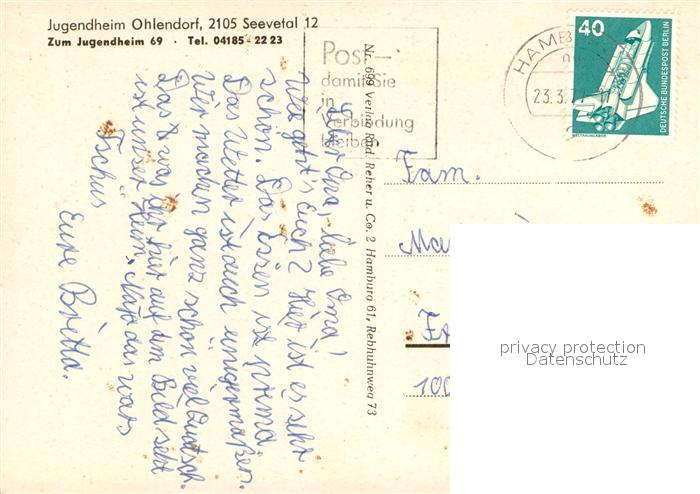 Jugendheim Ohlendorf, 2105 Seevetal 12
Zum Jugendheim 69 · Tel. 04185 - 22 23
Post –
damit Sie
in
Verbindung
bleiben
HAMB
23.3.7
40
DEUTSCHE BUNDESPOST BERLIN
WELTRAUMLABOR
Lieber Opa, liebe Oma!
Wie geht's Euch? Hier ist es sehr
schön. Das Essen ist prima
Das Wetter ist auch einigermaßen.
Wir machen ganz schön viel Quatsch.
Das was Ihr hier auf dem Bild seht
ist unser Heim. Na ja das wars
Tschüs
Eure Britta.
Nr. 699 Verlag Rud. Reher u. Co. 2 Hamburg 61, Rebhuhnweg 73
Fam.
Ma
100
privacy protection
Datenschutz